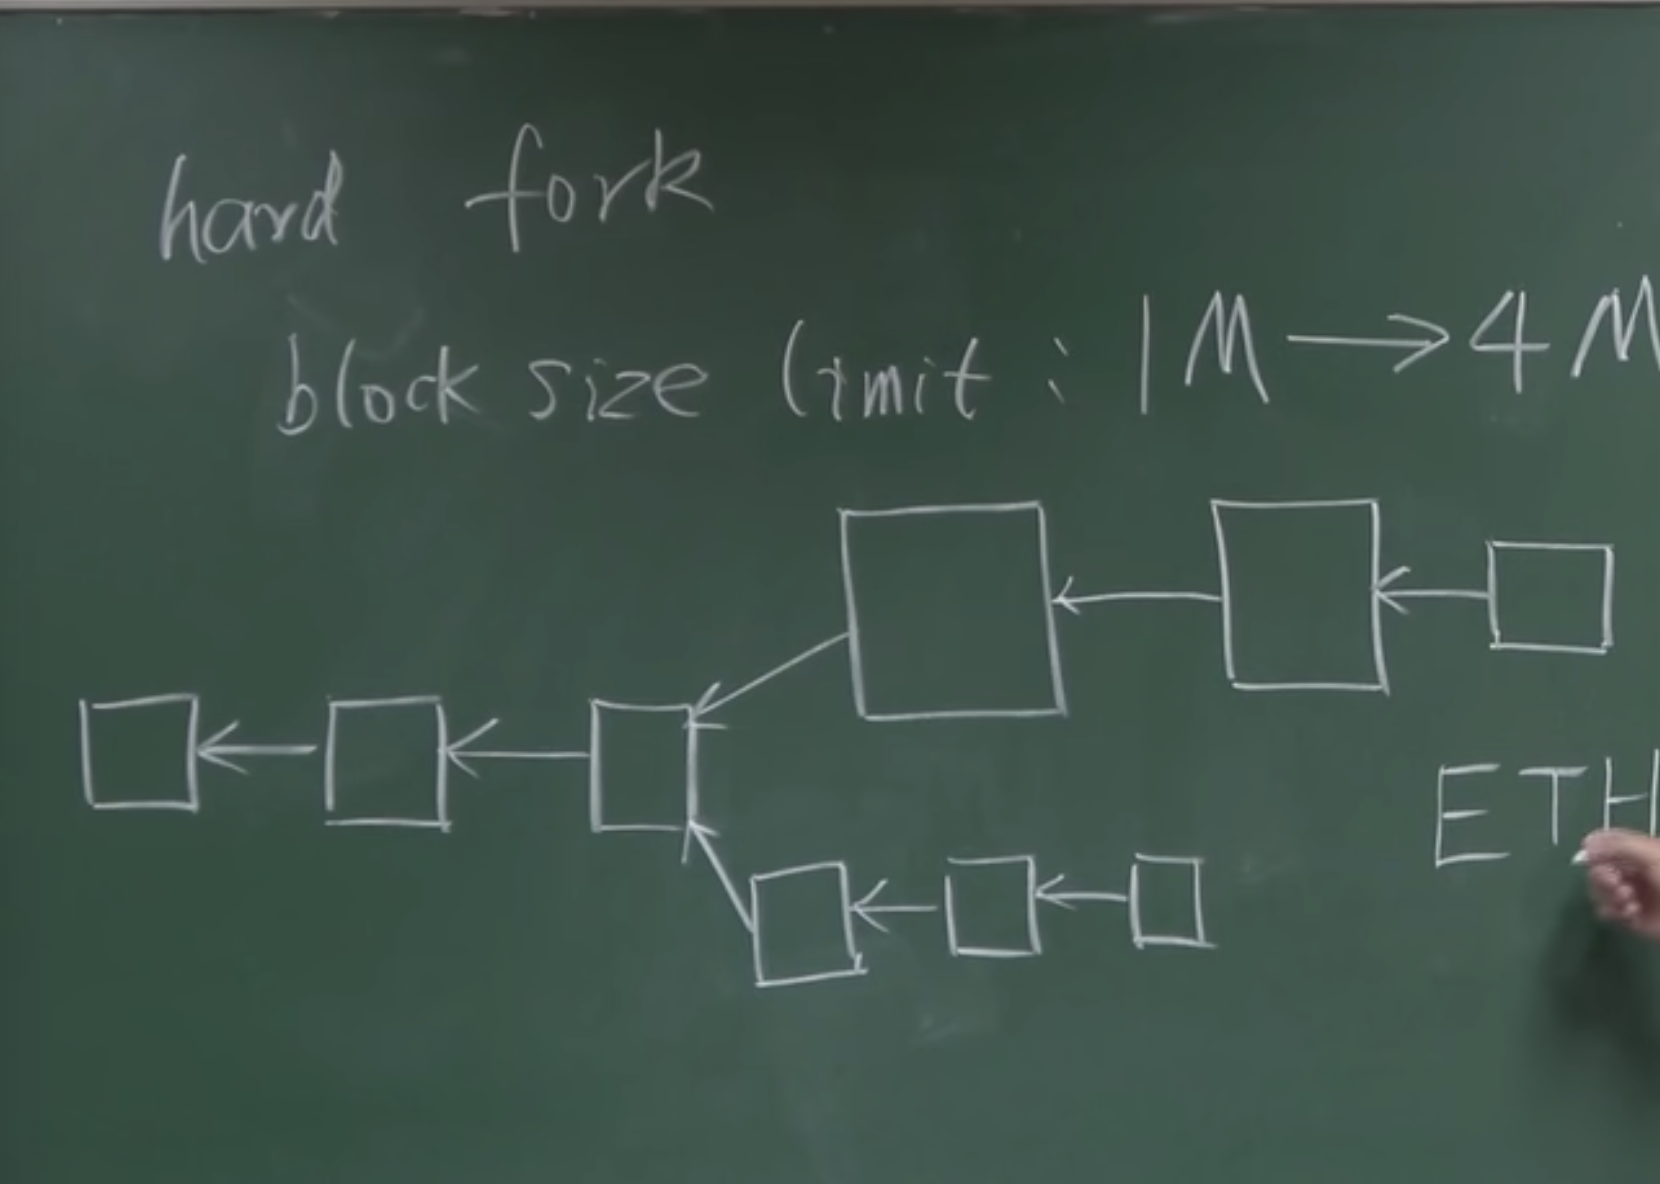 hard fork
block size limit : 1M → 4M
ETH